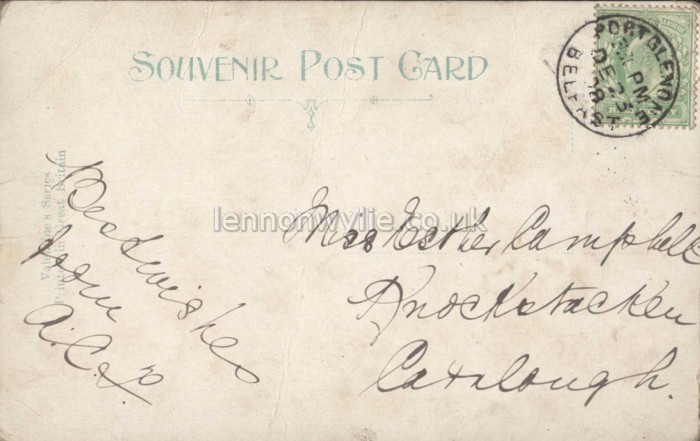 SOUVENIR POST CARD
PORTGLENONE
PM
DE 23
08
BELFAST
Valentine's Series
Printed in Great Britain
Best wishes
from
lennonwylie.co.uk
Miss Esther Campbell
Knockstacken
Carlough.